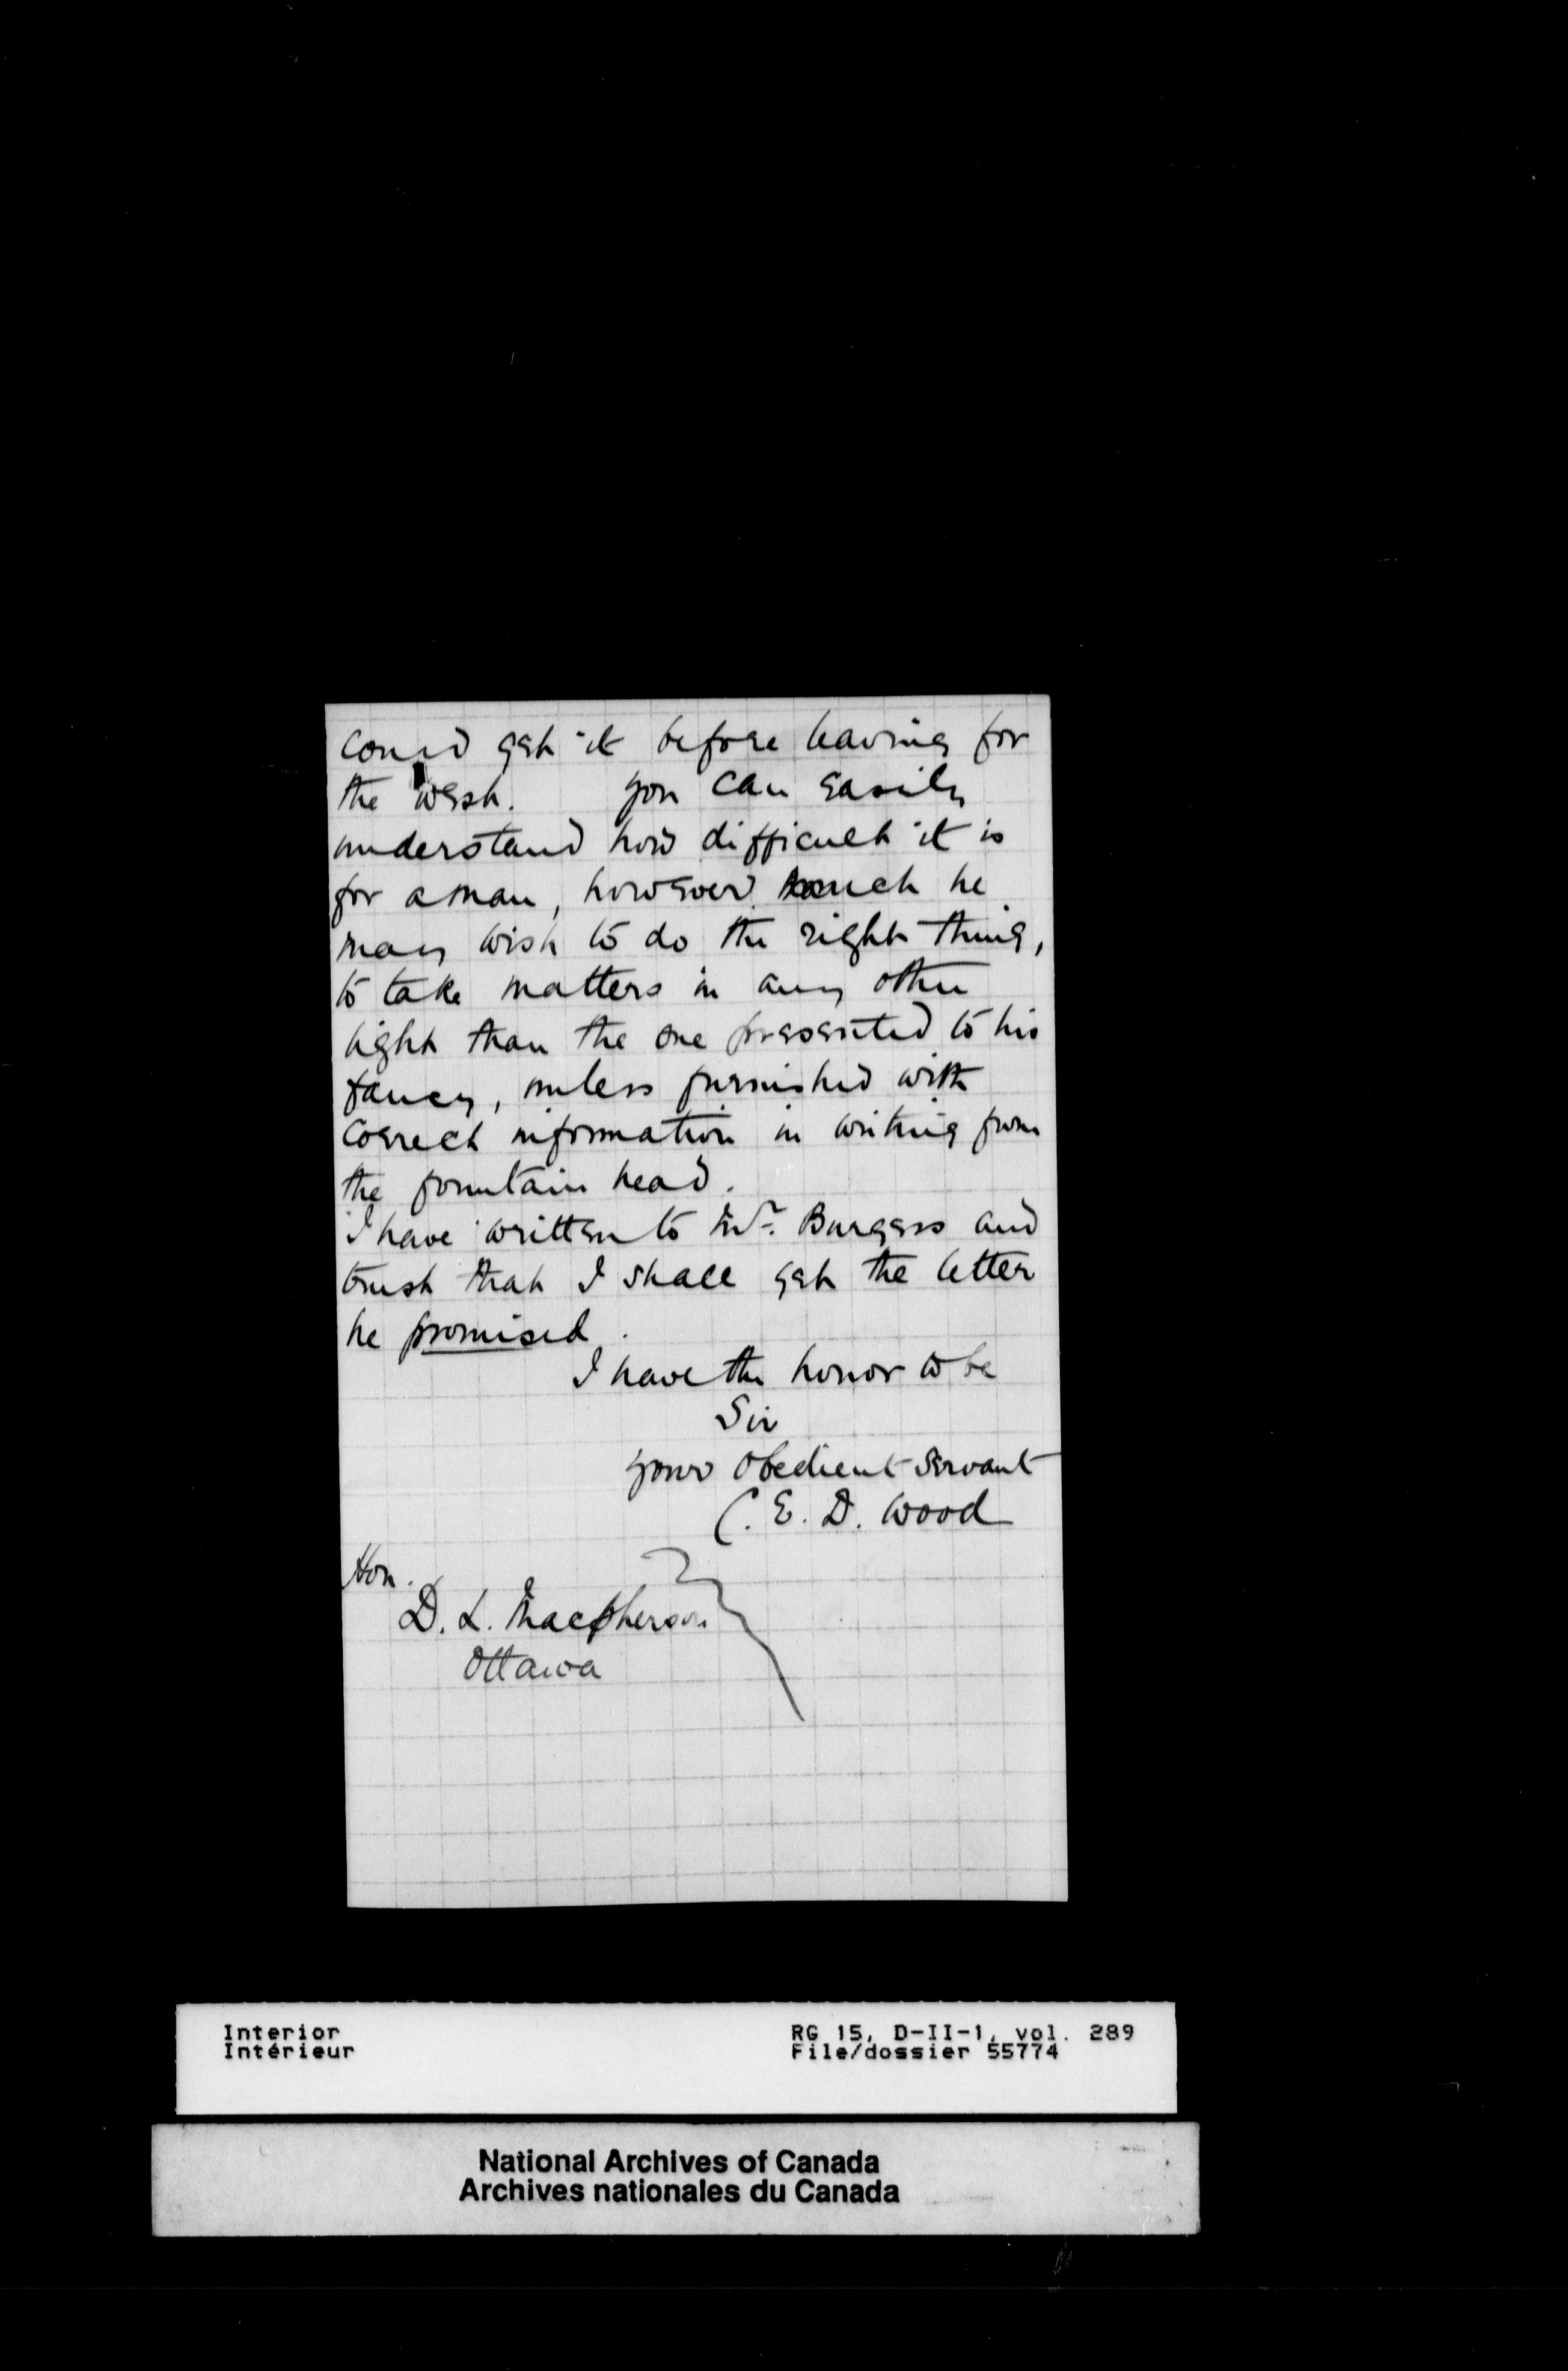 could get it before leaving for
the West. You can easily
understand how difficult it is
for a man, however much he
may wish to do the right thing,
to take matters in any other
light than the one presented to his
fancy, unless furnished with
correct information in writing from
the fountain head.
I have written to Mr. Burgess and
trust that I shall get the letter
he promised.
I have the honor to be
Sir
Your Obedient Servant
C. E. D. Wood
Hon.
D. L. Macpherson
Ottawa
Interior RG 15, D-II-1, vol. 289
Intérieur File/dossier 55774
National Archives of Canada
Archives nationales du Canada